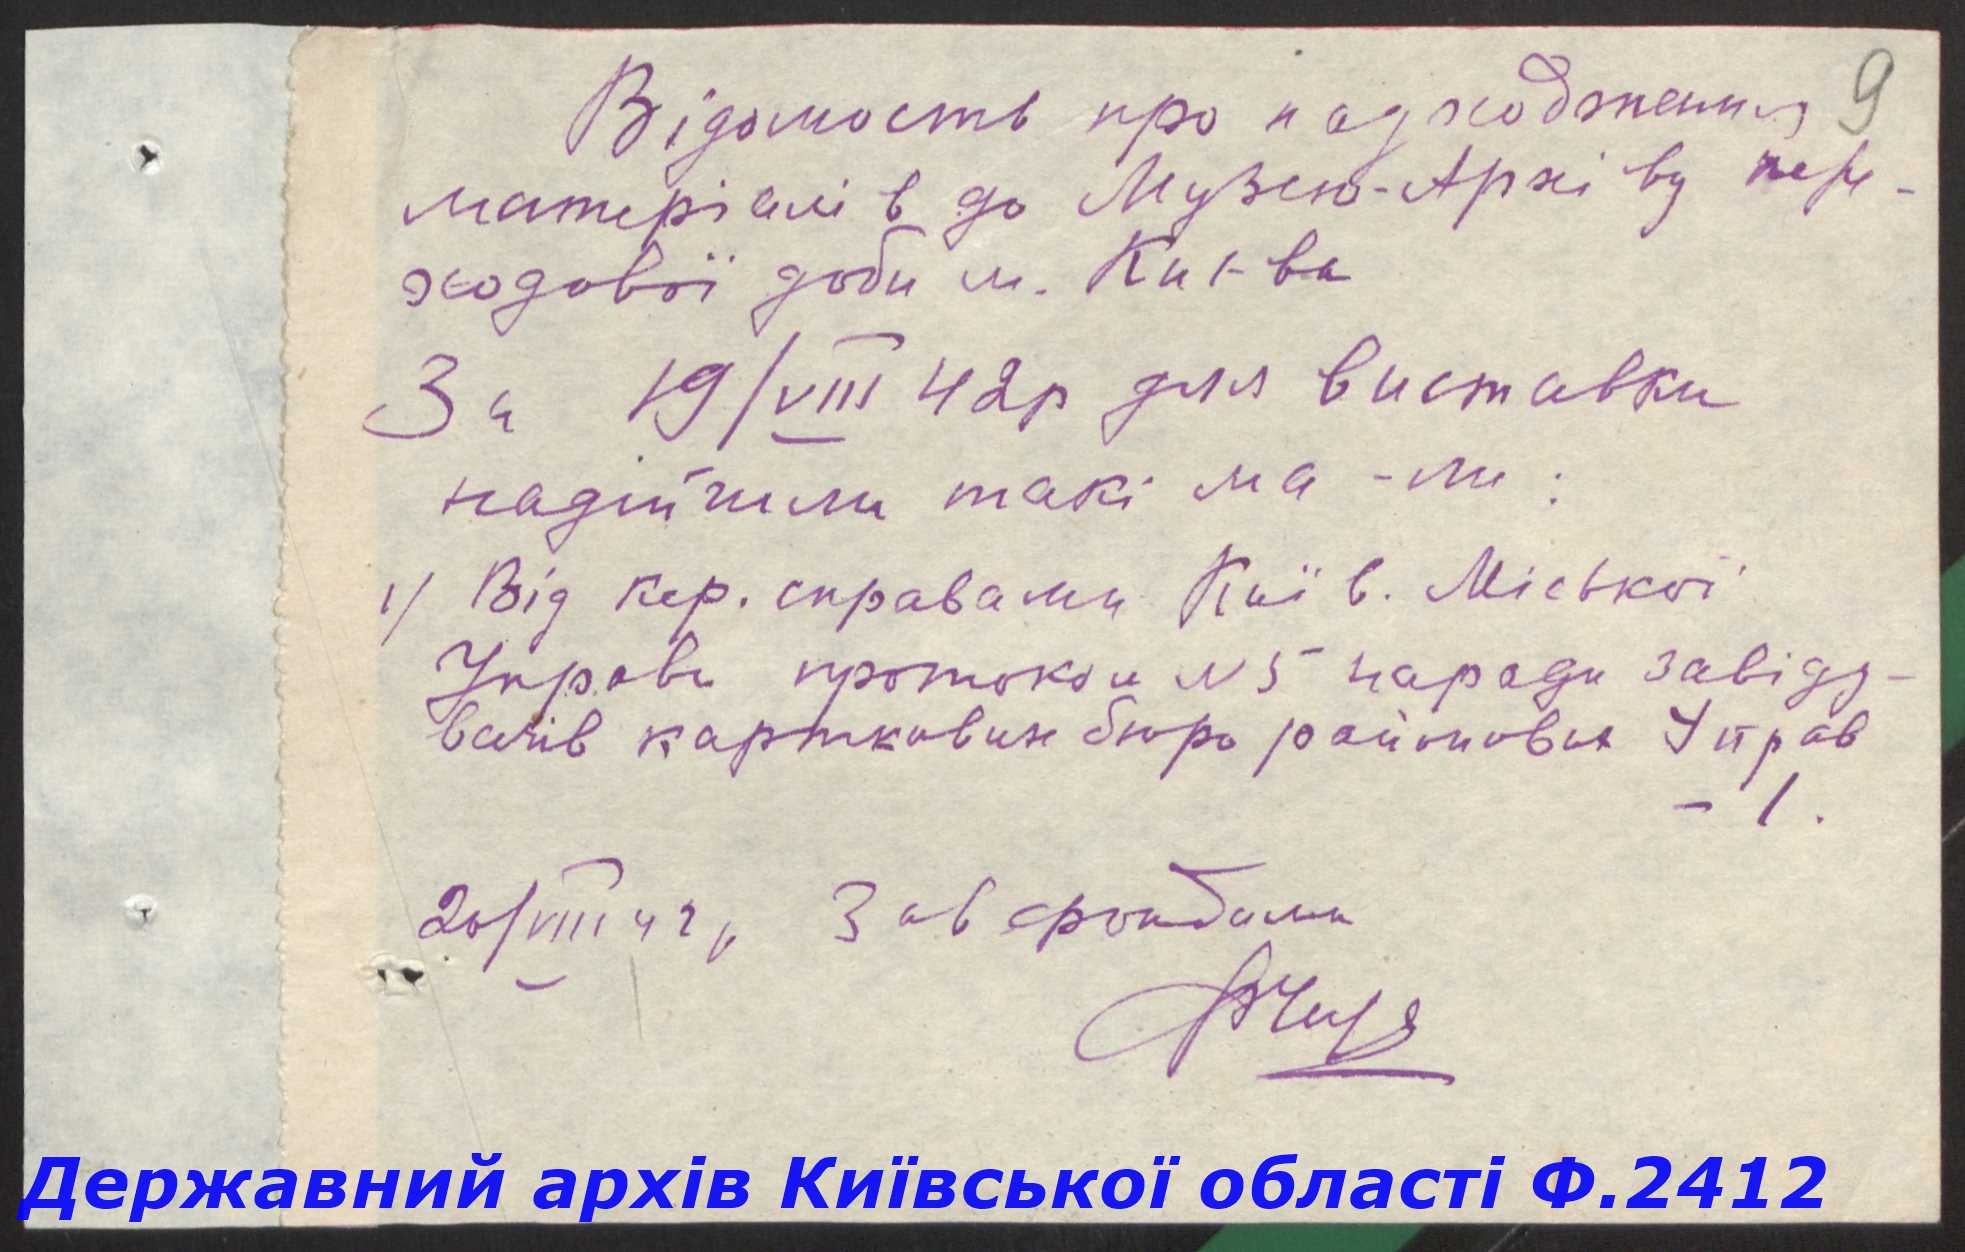 9
Відомость про надходження
матеріалів до Музею-Архіву пере-
ходової доби м. Києва
За 19/VIII 42р для виставки
надійшли такі ма-ли:
1/ Від кер. справами Київ. Міської
Управи протокол N5 наради завіду-
вачів карткових бюро районових Управ
- 1.
20/VIII 42р Зав фондами
Державний архів Київської області Ф.2412